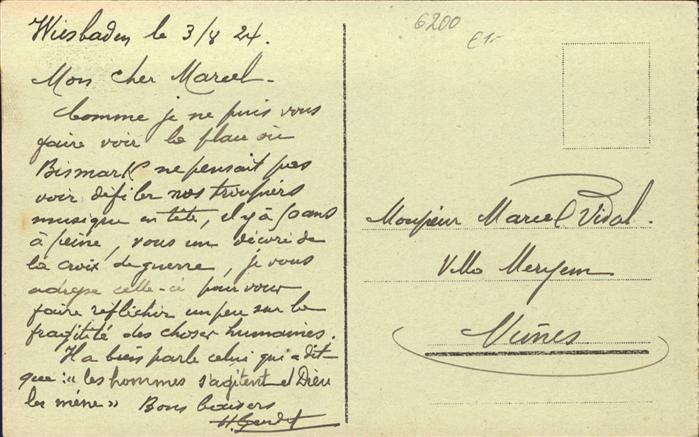 Wiesbaden le 3/8 24.
Mon cher Marcel -
Comme je ne puis vous
faire voir la place où
Bismark ne pensait pas
voir défiler nos troupiers
musique en tête, il y a 50 ans
à peine, vous un décoré de
la croix de guerre, je vous
adresse celle-ci pour vous
faire réflichir un peu sur la
fragilité des choses humaines.
Il a bien parlé celui qui a dit
que: « les hommes s'agitent et Dieu
les mène » Bons baisers
6200
E1-
Monsieur Marcel Vidal.
Villa Meryem
Nîmes